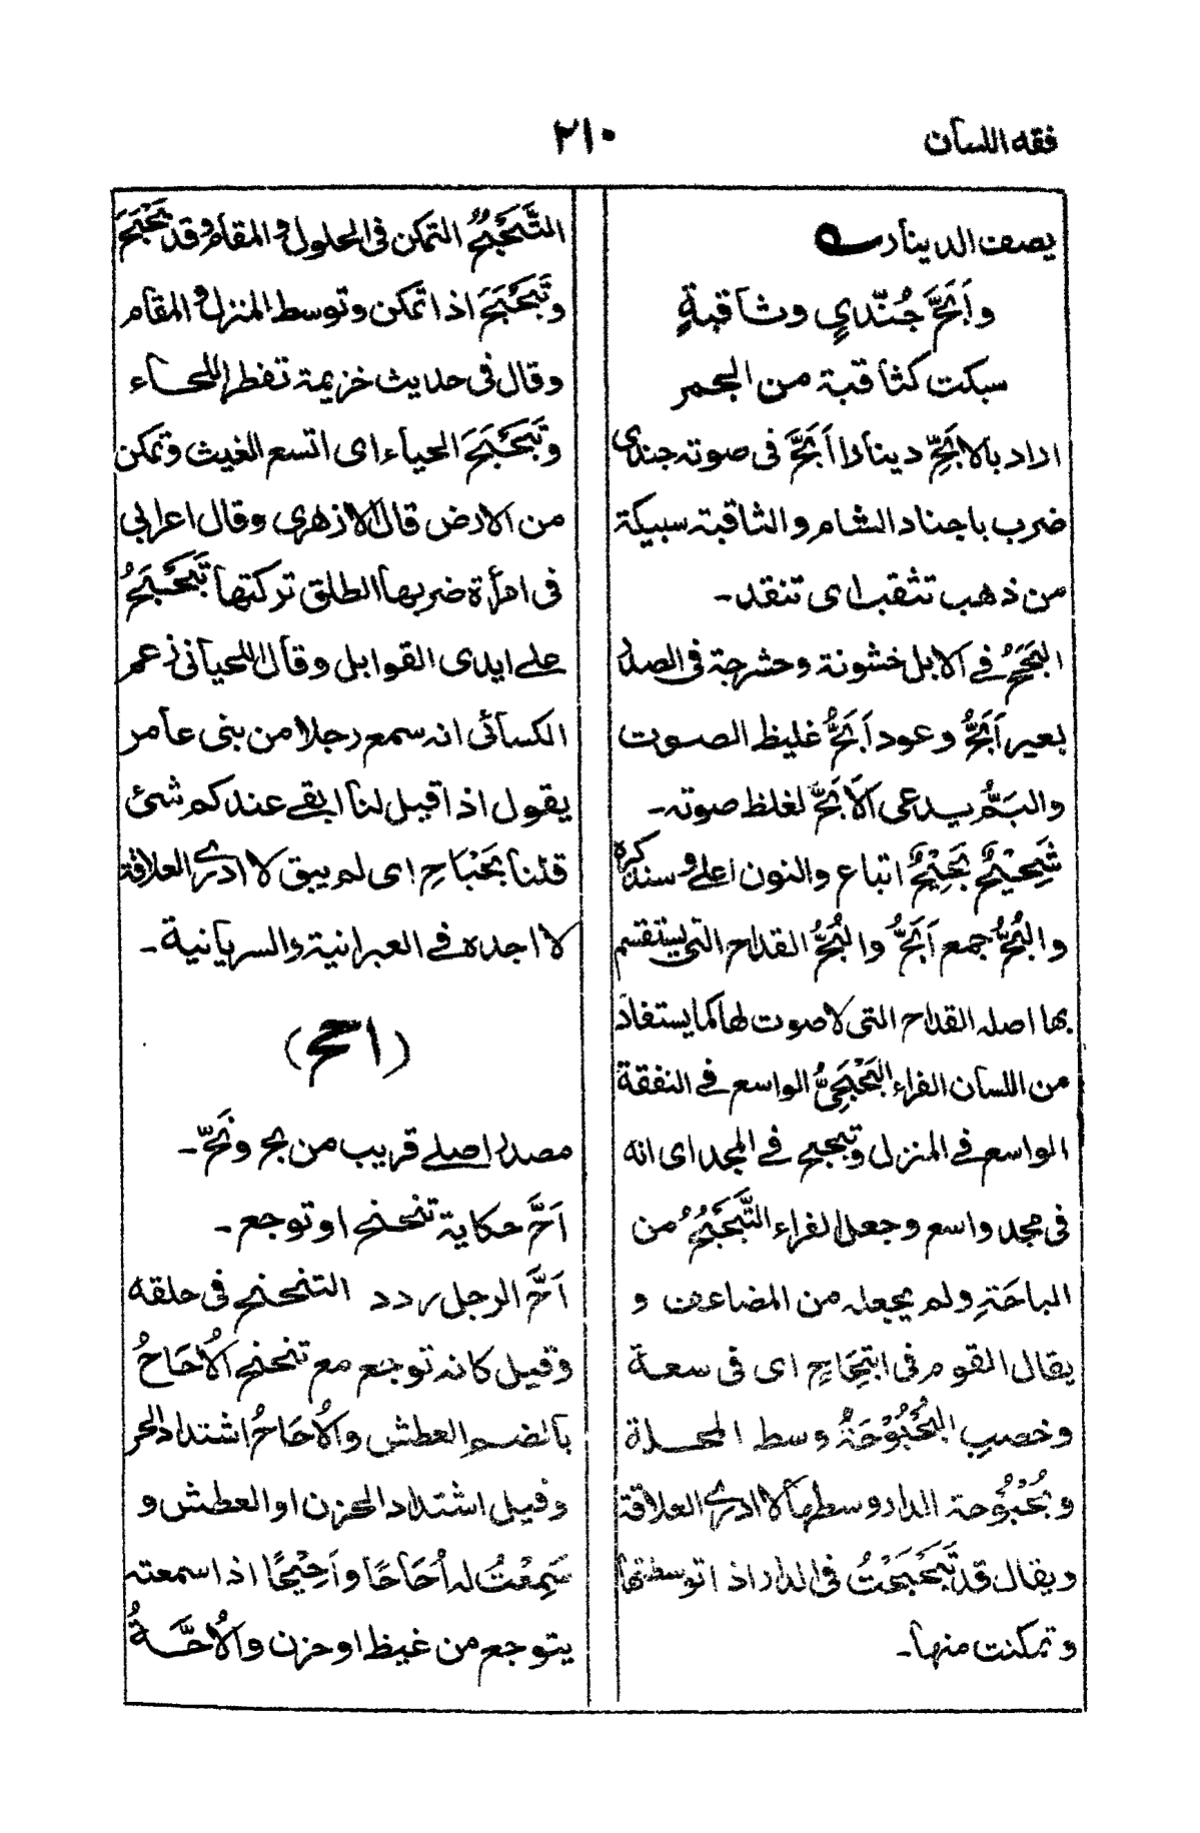 فقه اللسان
٢١٠
يصف الدينار
وأَبَحَّ جُنّدي وثاقبةٍ
سبكت كثاقبة من الجمر
اراد بالابَحِّ دينارا أَبَحَّ فى صوته جندى
ضرب باجناد الشام والثاقبة سبيكة
من ذهب تثقب اى تنقد۔
البَحَحُ فے الابل خشونة وحشرجة فى الصدر
بعير أَبَحُّ وعود أَبَحُّ غليظ الصوت
والبَمُّ يدعى الأَبَحَّ لغلظ صوته۔
شَحِيْحٌ بَحِيْحٌ اتباع والنون اعلى وسنذكره
والبُحُّ جمع أَبَحُّ والبُحُّ القداح التي يستقسم
بها اصله القداح التى لاصوت لها كما يستفاد
من اللسان الفراء البَحْبَحِيُّ الواسع فے النفقة
الواسع فے المنزل وتبحبح فے المجد اى انه
فى مجد واسع وجعل الفراء التَّبَحْبُحُ من
الباحَةِ ولم يجعله من المضاعف و
يقال القوم فى ابتِحَاحٍ اى فى سعة
وخصبٍ البُحْبُوْحَةُ وسط المحلة
وبُحْبُوُحة الدار وسطها لا ادرى العلاقة
ويقال قد تَبَحْبَحْتُ فى الدار اذا توسطتها
وتمكنت منها۔
التَّبَحْبُحُ التمكن فى الحلول والمقام وقد بَحْبَحَ
وتَبَحْبَحَ اذا تمكن وتوسط المنزل والمقام
وقال فى حديث خزيمة تفطر اللحاء
وتَبَحْبَحَ الحياء اى اتسع الغيث وتمكن
من الارض قال الازهرى وقال اعرابى
فى امرأة ضربها الطلق تركتها تَبَحْبَحُ
علے ايدى القوابل وقال اللحيانى زعم
الكسائى انه سمع رجلا من بنى عامر
يقول اذا قيل لنا ابقے عندكم شئ
قلنا بَحْبَاحِ اى لم يبق لا ادرى العلاقة
لا اجده فے العبرانية والسريانية۔
(احح)
مصدر اصلے قريب من بح ونَحّ۔
اَحَّ حكاية تنحنح او توجع۔
اَحَّ الرجل ردد التنحنح فى حلقه
وقيل كانه توجع مع تنحنح الاُحَاحُ
بالضم العطش والاُحَاحُ اشتداد الحر
وقيل اشتداد الحزن او العطش و
سَمِعْتُ له اُحَاحًا واَحِيْحًا اذا سمعته
يتوجع من غيظ او حزن والاُحَّةُ